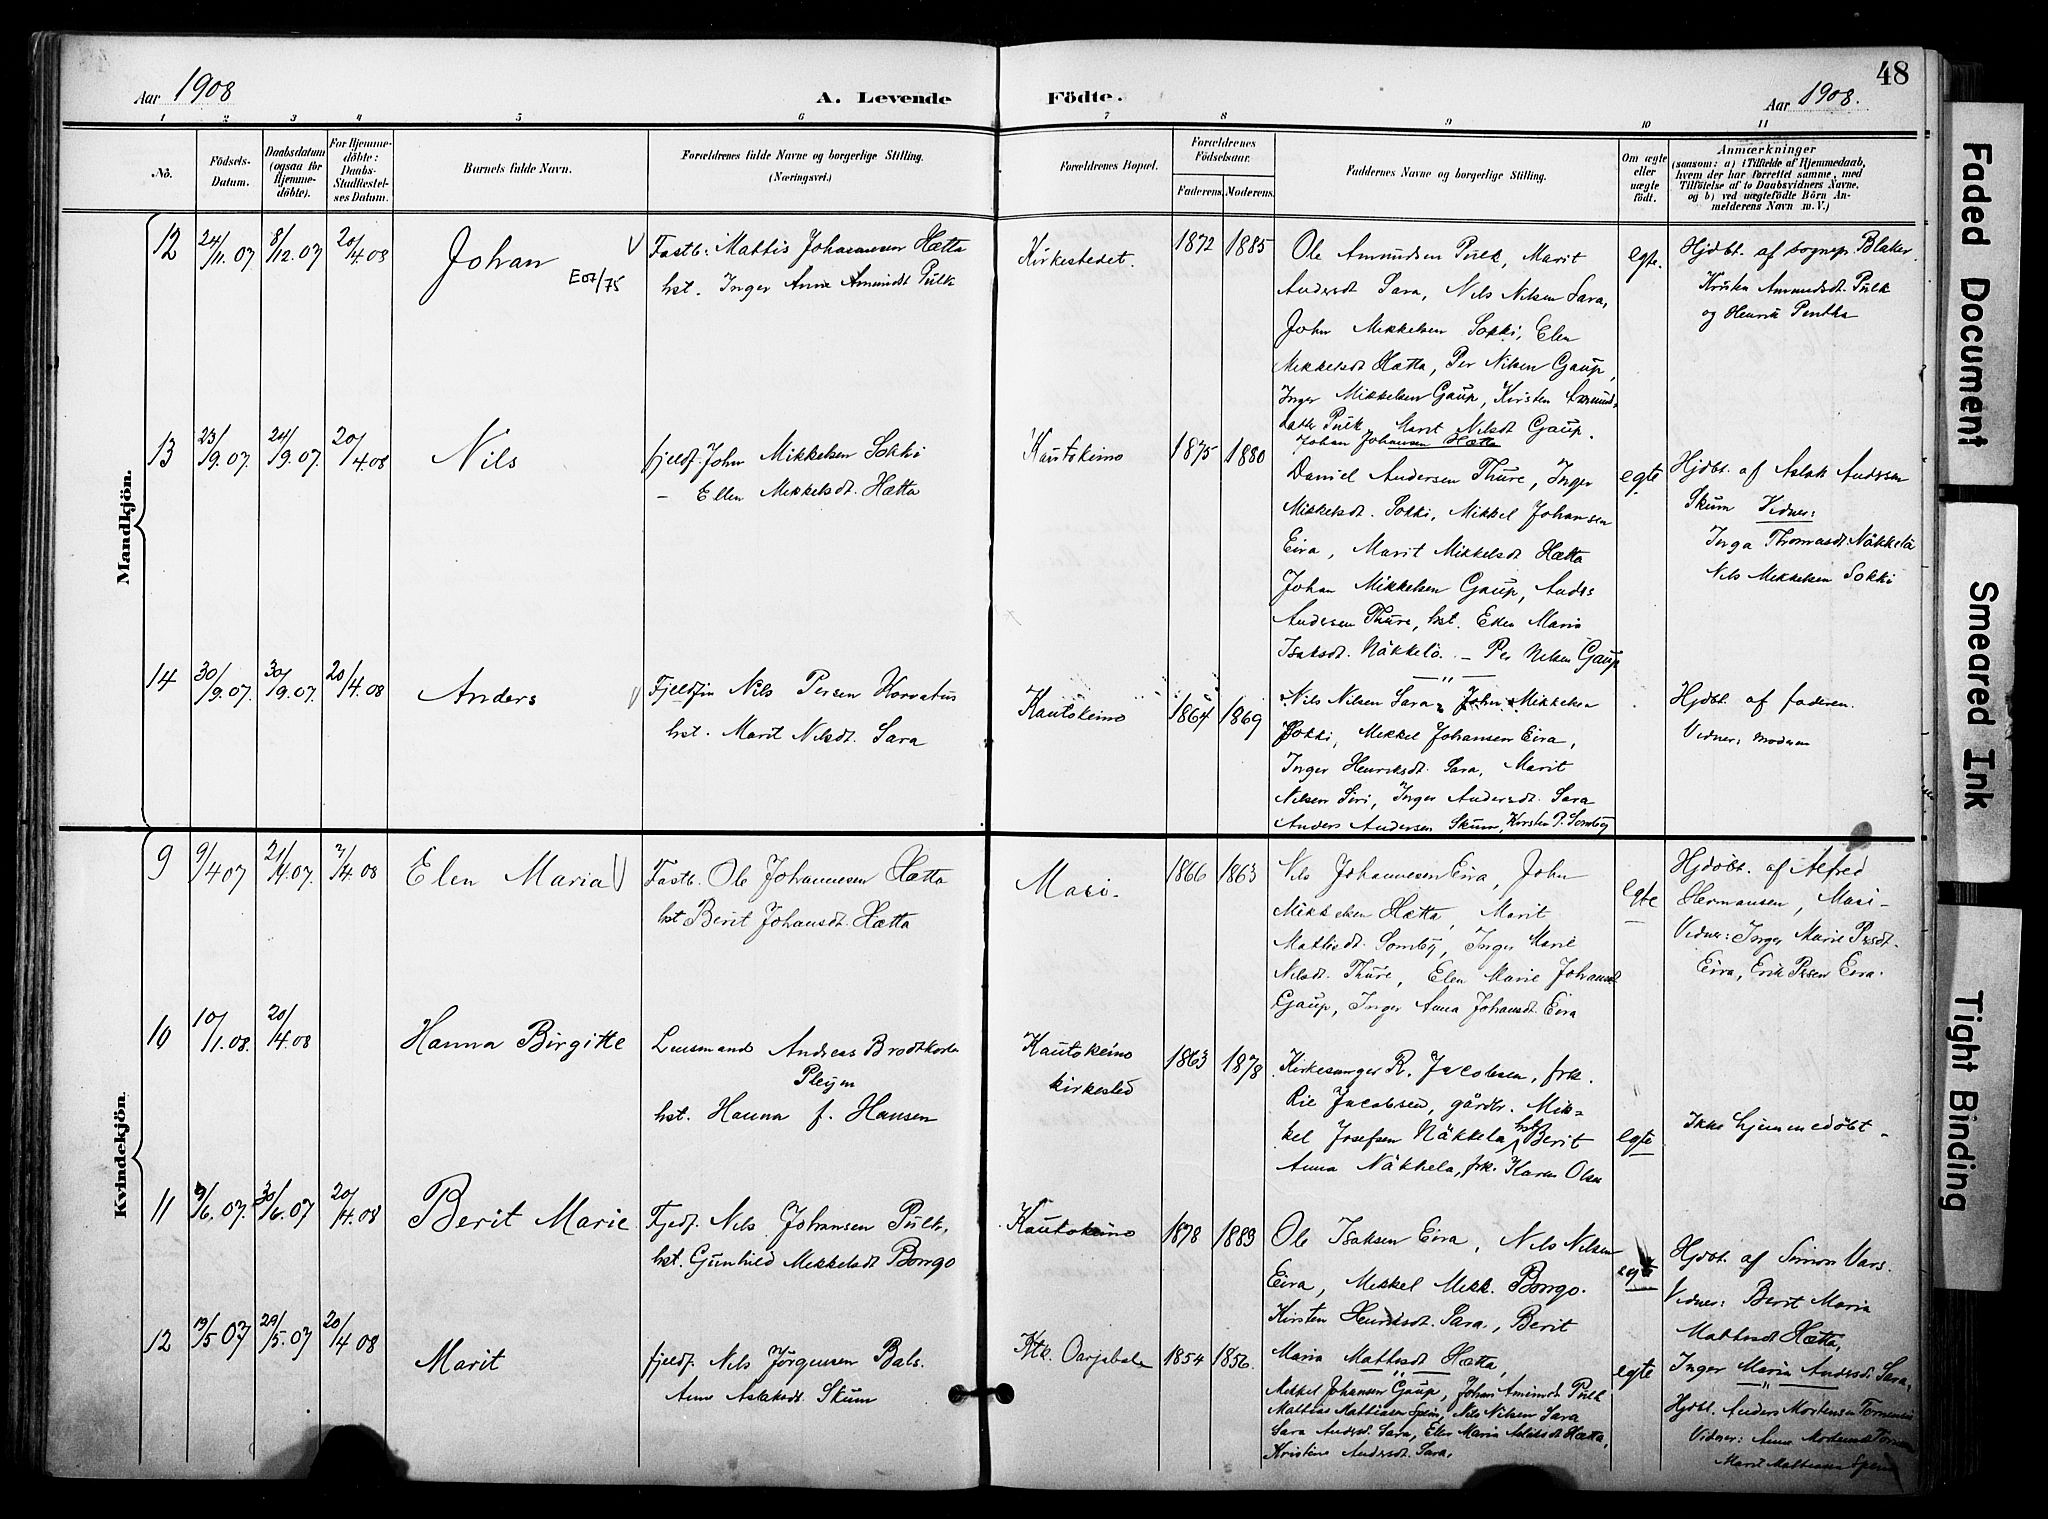 Aar 1908
A. Levende
Födte.
Aar 1908.
48
1 2 3 4 5 6 7 8 9 10 11
No.
Födsels-
Datum.
Daabsdatum
(ogsaa for
Hjemme-
döbte).
For Hjemme-
döbte:
Daabs-
Stadfæstel-
ses Datum.
Barnets fulde Navn.
Forældrenes fulde Navne og borgerlige Stilling.
(Næringsvei.)
Forældrenes Bopæl.
Forældrenes
Födselsaar.
Faderens. Moderens.
Faddernes Navne og borgerlige Stilling.
Om ægte
eller
uægte
födt.
Anmærkninger
(saasom: a) i Tilfælde af Hjemmedaab,
hvem der har forrettet samme, med
Tilföielse af to Daabsvidners Navne,
og b) ved uægtefödte Börn An-
melderens Navn m. V.)
Mandkjön.
12
24/11.07
8/12.07
20/4.08
Johan
E07/75
Fastb: Mattis Johannesen Hætta
hst. Inger Anna Amundt Pulk
Kirkestedet.
1872
1885
Ole Amundsen Pulk, Marit
Andersdt Sara, Nils Nilsen Sara,
John Mikkelsen Sokki, Elen
Mikkelsdt Hætta, Per Nilsen Gaup,
Inger Mikkelsen Gaup, Kirsten Amund-
datter Pulk, Marit Nilsdt Gaup.
Johan Johansen Hætta
egte.
Hjdbt. af sognep. Blaker.
Kristen Amundsdt. Pulk
og Henrik Pentha
13
23/9.07
24/9.07.
20/4.08
Nils
fjeldf. John Mikkelsen Sokki
– Ellen Mikkelsdt. Hætta
Kautokeino
1875
1880
Daniel Andersen Thure, Inger
Mikkelsdt. Sokki, Mikkel Johansen
Eira, Marit Mikkelsdt Hætta
Johan Mikkelsen Gaup, Anders
Andersen Thure, hst. Elen Maria
Isaksdt. Näkkelä. – Per Nilsen Gaup
egte
Hjdbt. af Aslak Andersen
Skum Vidner:
Inga Thomasdt Näkkelä
Nils Mikkelsen Sokki
14
30/9.07
30/9.07.
20/4.08
Anders
Fjeldfin Nils Persen Horvatus
hst. Marit Nilsdt. Sara
Kautokeino
1864
1869
Nils Nilsen Sara, John Mikkelsen
Sokki, Mikkel Johansen Eira,
Inger Henriksdt. Sara, Marit
Nilsen Siri, Inger Andersdt. Sara
Anders Andersen Skum, Kirsten P. Somby
"
Hjdbt. af faderen.
Vidner: moderen
Kvindekjön.
9
9/4 07
21/4.07.
7/4.08
Elen Maria
Fastb. Ole Johannesen Hætta
hst Berit Johansdt. Hætta
Masi.
1866
1863
Nils Johannesen Eira, John
Mikkelsen Hætta, Marit
Mathisdt. Somby, Inger Marie
Nilsdt. Thure, Elen Marie Johansdt
Gaup, Inger Anna Johansdt. Eira
egte
Hjdöbt. af Alfred
Hermansen, Masi-
Vidner: Inger Marie Prsdt.
Eira, Erik Prsen Eira.
10
10/1.08.
20/4.08
Hanna Birgitte
Lensmand Andreas Brodtkorb
Pleym
hst. Hanna f. Hansen
Kautokeino
kirkested
1863
1878
Kirkesanger R. Jacobsen, frk.
Rie Jacobsen, gårdbr. Mik-
kel Josefsen Näkkela, hst Berit
Anna Näkkela, frk. Karen Olsen
egte
Ikke hjemmedöbt –
11
9/6.07.
30/6.07
20/4.08
Berit Marie
Fjedf. Nils Johansen Pulk,
hst. Gunhild Mikkelsdt Bongo
Kautokeino
1878
1883
Ole Isaksen Eira, Nils Nilsen
Eira, Mikkel Mikk. Bongo.
Kirsten Henriksdt. Sara, Berit
Maria Mattisdt Hætta,
egte
Hjdbt. af Simon Vars.
Vidner: Berit Maria
Mattisdt Hætta,
Inger Maria Andersdt Sara,
12
19/5 07
29/5.07
20/4 08
Marit
fjeldf. Nils Jörgensen Bals.
Ane Aslaksdt. Skum
Ktk. Oarjabele
1854
1856.
Mikkel Johansen Gaup, Johan Amundst Pulk
Mathias Mathiasen Spein, Nils Nilsen Sara
Sara Andersdt. Sara, Elen Maria Aslaksdt Hætta,
Kristine Andersdt. Sara,
egte
Hjdbt. Anders Mortensen Tornensis
Vidner: Anne
Marit Mathiasen Spein
Faded Document
Smeared Ink
Tight Binding